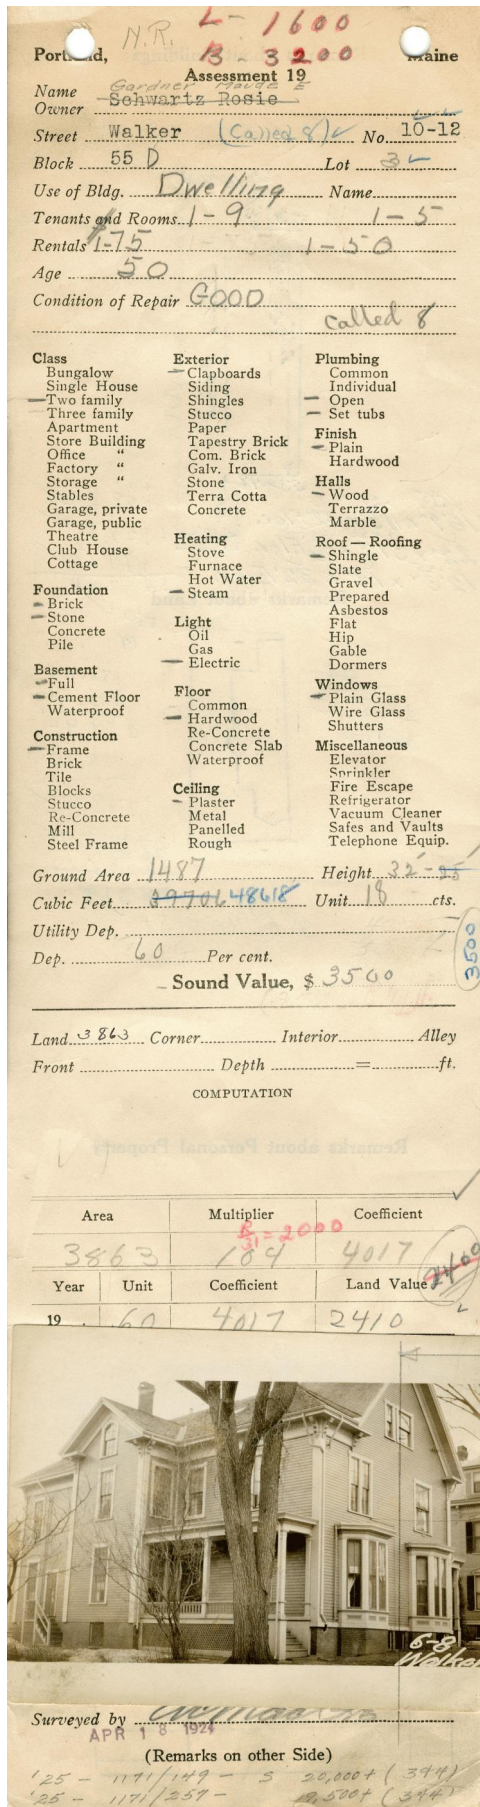 N.R. L- 1600
B- 3200
Portland, Maine
Assessment 19
Gardner Maude E
Name Schwartz Rosie
Owner
Street Walker (Called 8) No. 10-12
Block 55 D Lot 3
Use of Bldg. Dwelling Name
Tenants and Rooms 1-9 1-5
Rentals $1-75 1-50
Age 50
Condition of Repair GOOD
Called 8
Class
Bungalow
Single House
Two family
Three family
Apartment
Store Building
Office "
Factory "
Storage "
Stables
Garage, private
Garage, public
Theatre
Club House
Cottage
Foundation
Brick
Stone
Concrete
Pile
Basement
Full
Cement Floor
Waterproof
Construction
Frame
Brick
Tile
Blocks
Stucco
Re-Concrete
Mill
Steel Frame
Exterior
Clapboards
Siding
Shingles
Stucco
Paper
Tapestry Brick
Com. Brick
Galv. Iron
Stone
Terra Cotta
Concrete
Heating
Stove
Furnace
Hot Water
Steam
Light
Oil
Gas
Electric
Floor
Common
Hardwood
Re-Concrete
Concrete Slab
Waterproof
Ceiling
Plaster
Metal
Panelled
Rough
Plumbing
Common
Individual
Open
Set tubs
Finish
Plain
Hardwood
Halls
Wood
Terrazzo
Marble
Roof — Roofing
Shingle
Slate
Gravel
Prepared
Asbestos
Flat
Hip
Gable
Dormers
Windows
Plain Glass
Wire Glass
Shutters
Miscellaneous
Elevator
Sprinkler
Fire Escape
Refrigerator
Vacuum Cleaner
Safes and Vaults
Telephone Equip.
Ground Area 1487 Height 32'-25'
Cubic Feet 39706 48618 Unit 18 cts.
Utility Dep.
Dep. 60 Per cent.
3500
Sound Value, $ 3500
Land 3863 Corner Interior Alley
Front Depth = ft.
COMPUTATION
Remarks about Personal Property
Area Multiplier Coefficient
R/31 = 2000
3863 104 4017
2400
Year Unit Coefficient Land Value
19 . 60 4017 2410
6-8
Walker
Surveyed by
APR 18 1924
(Remarks on other Side)
'25 - 1171/149 - S 20,000+ (394)
'25 - 1171/257 - 500+ (394)